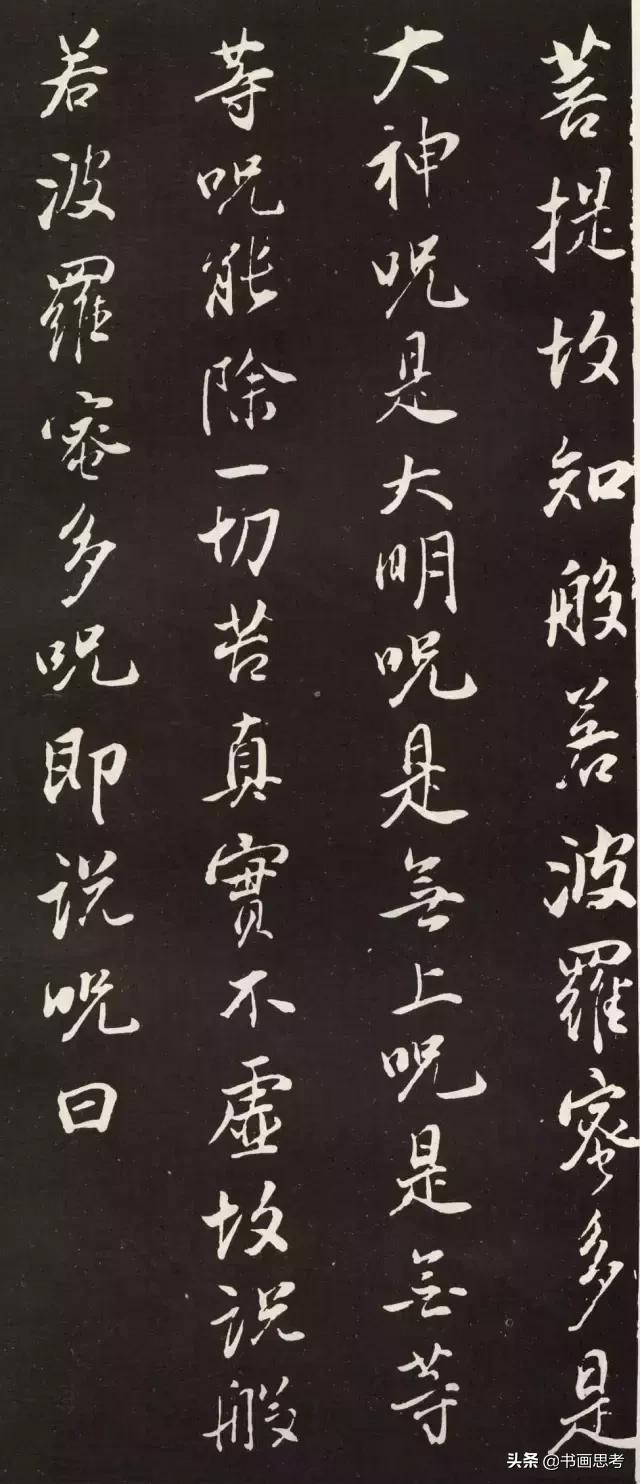 菩提故知般若波羅蜜多是
大神呪是大明呪是無上呪是無等
等呪能除一切苦真實不虛故説般
若波羅蜜多呪即説呪曰
头条 @书画思考